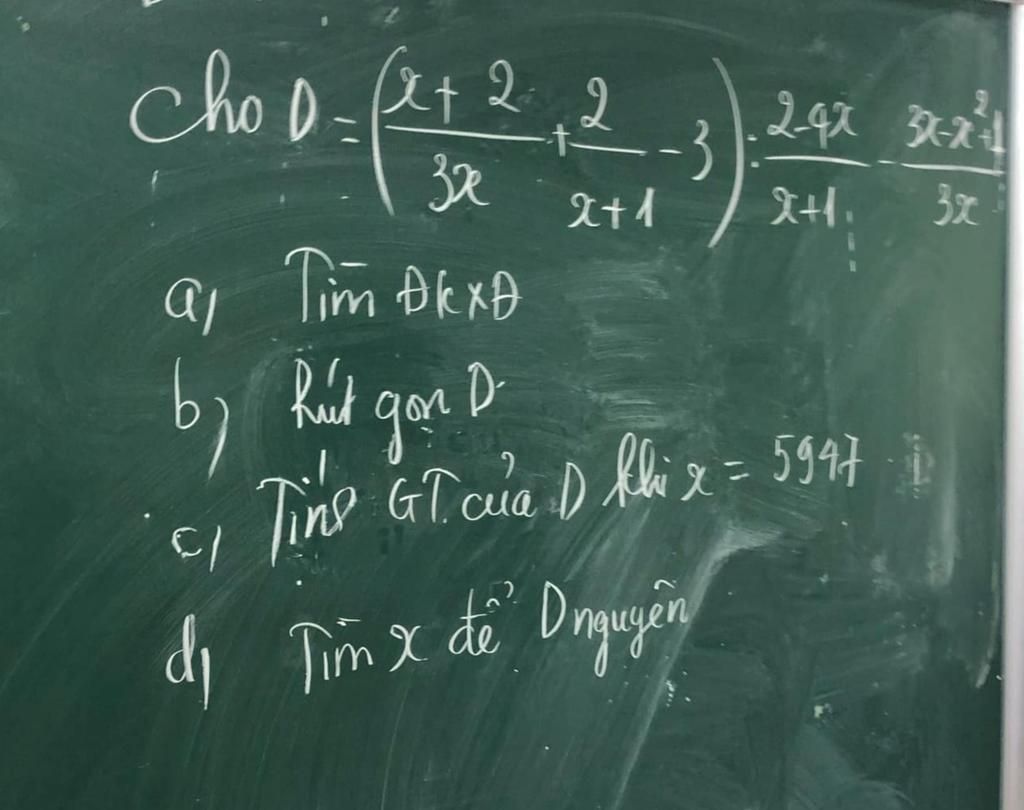 Cho D = (x+2/3x + 2/x+1 - 3) : 2-4x/x+1 - 3x-x²+1/3x
a, Tìm ĐKXĐ
b, Rút gọn D
c, Tính GT của D khi x = 5947
d, Tìm x để D nguyên